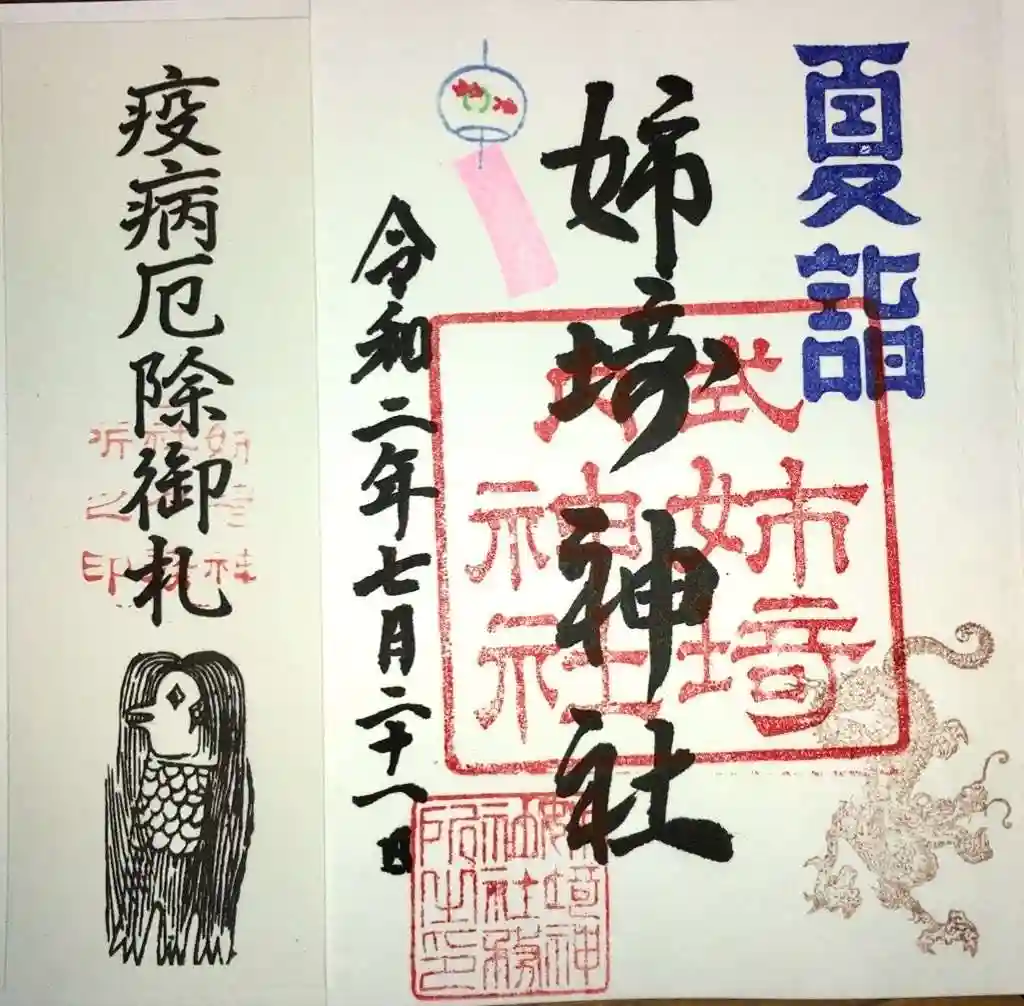 夏詣
姉埼神社
令和二年七月二十一日
式内
姉埼
神社
姉埼神
社社務
所之印
疫病厄除御札